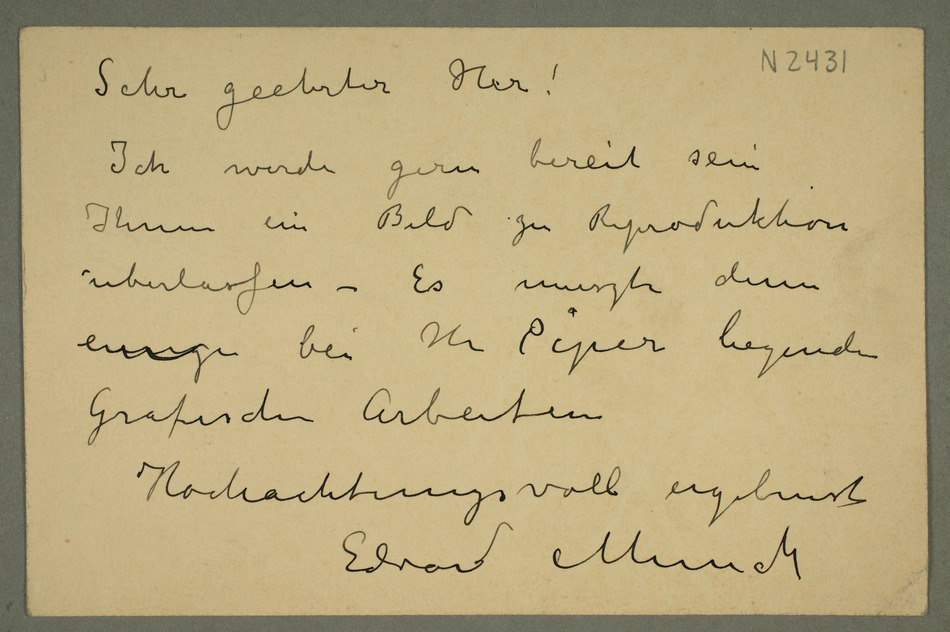 N 2431
Sehr geehrter Herr!
Ich werde gern bereit sein
Ihnen ein Bild zu Reproduktion
überlassen – Es muszte denn
einige bei Hr Piper liegende
Grafischen Arbeiten
Hochachtungsvoll ergebenst
Edvard Munch